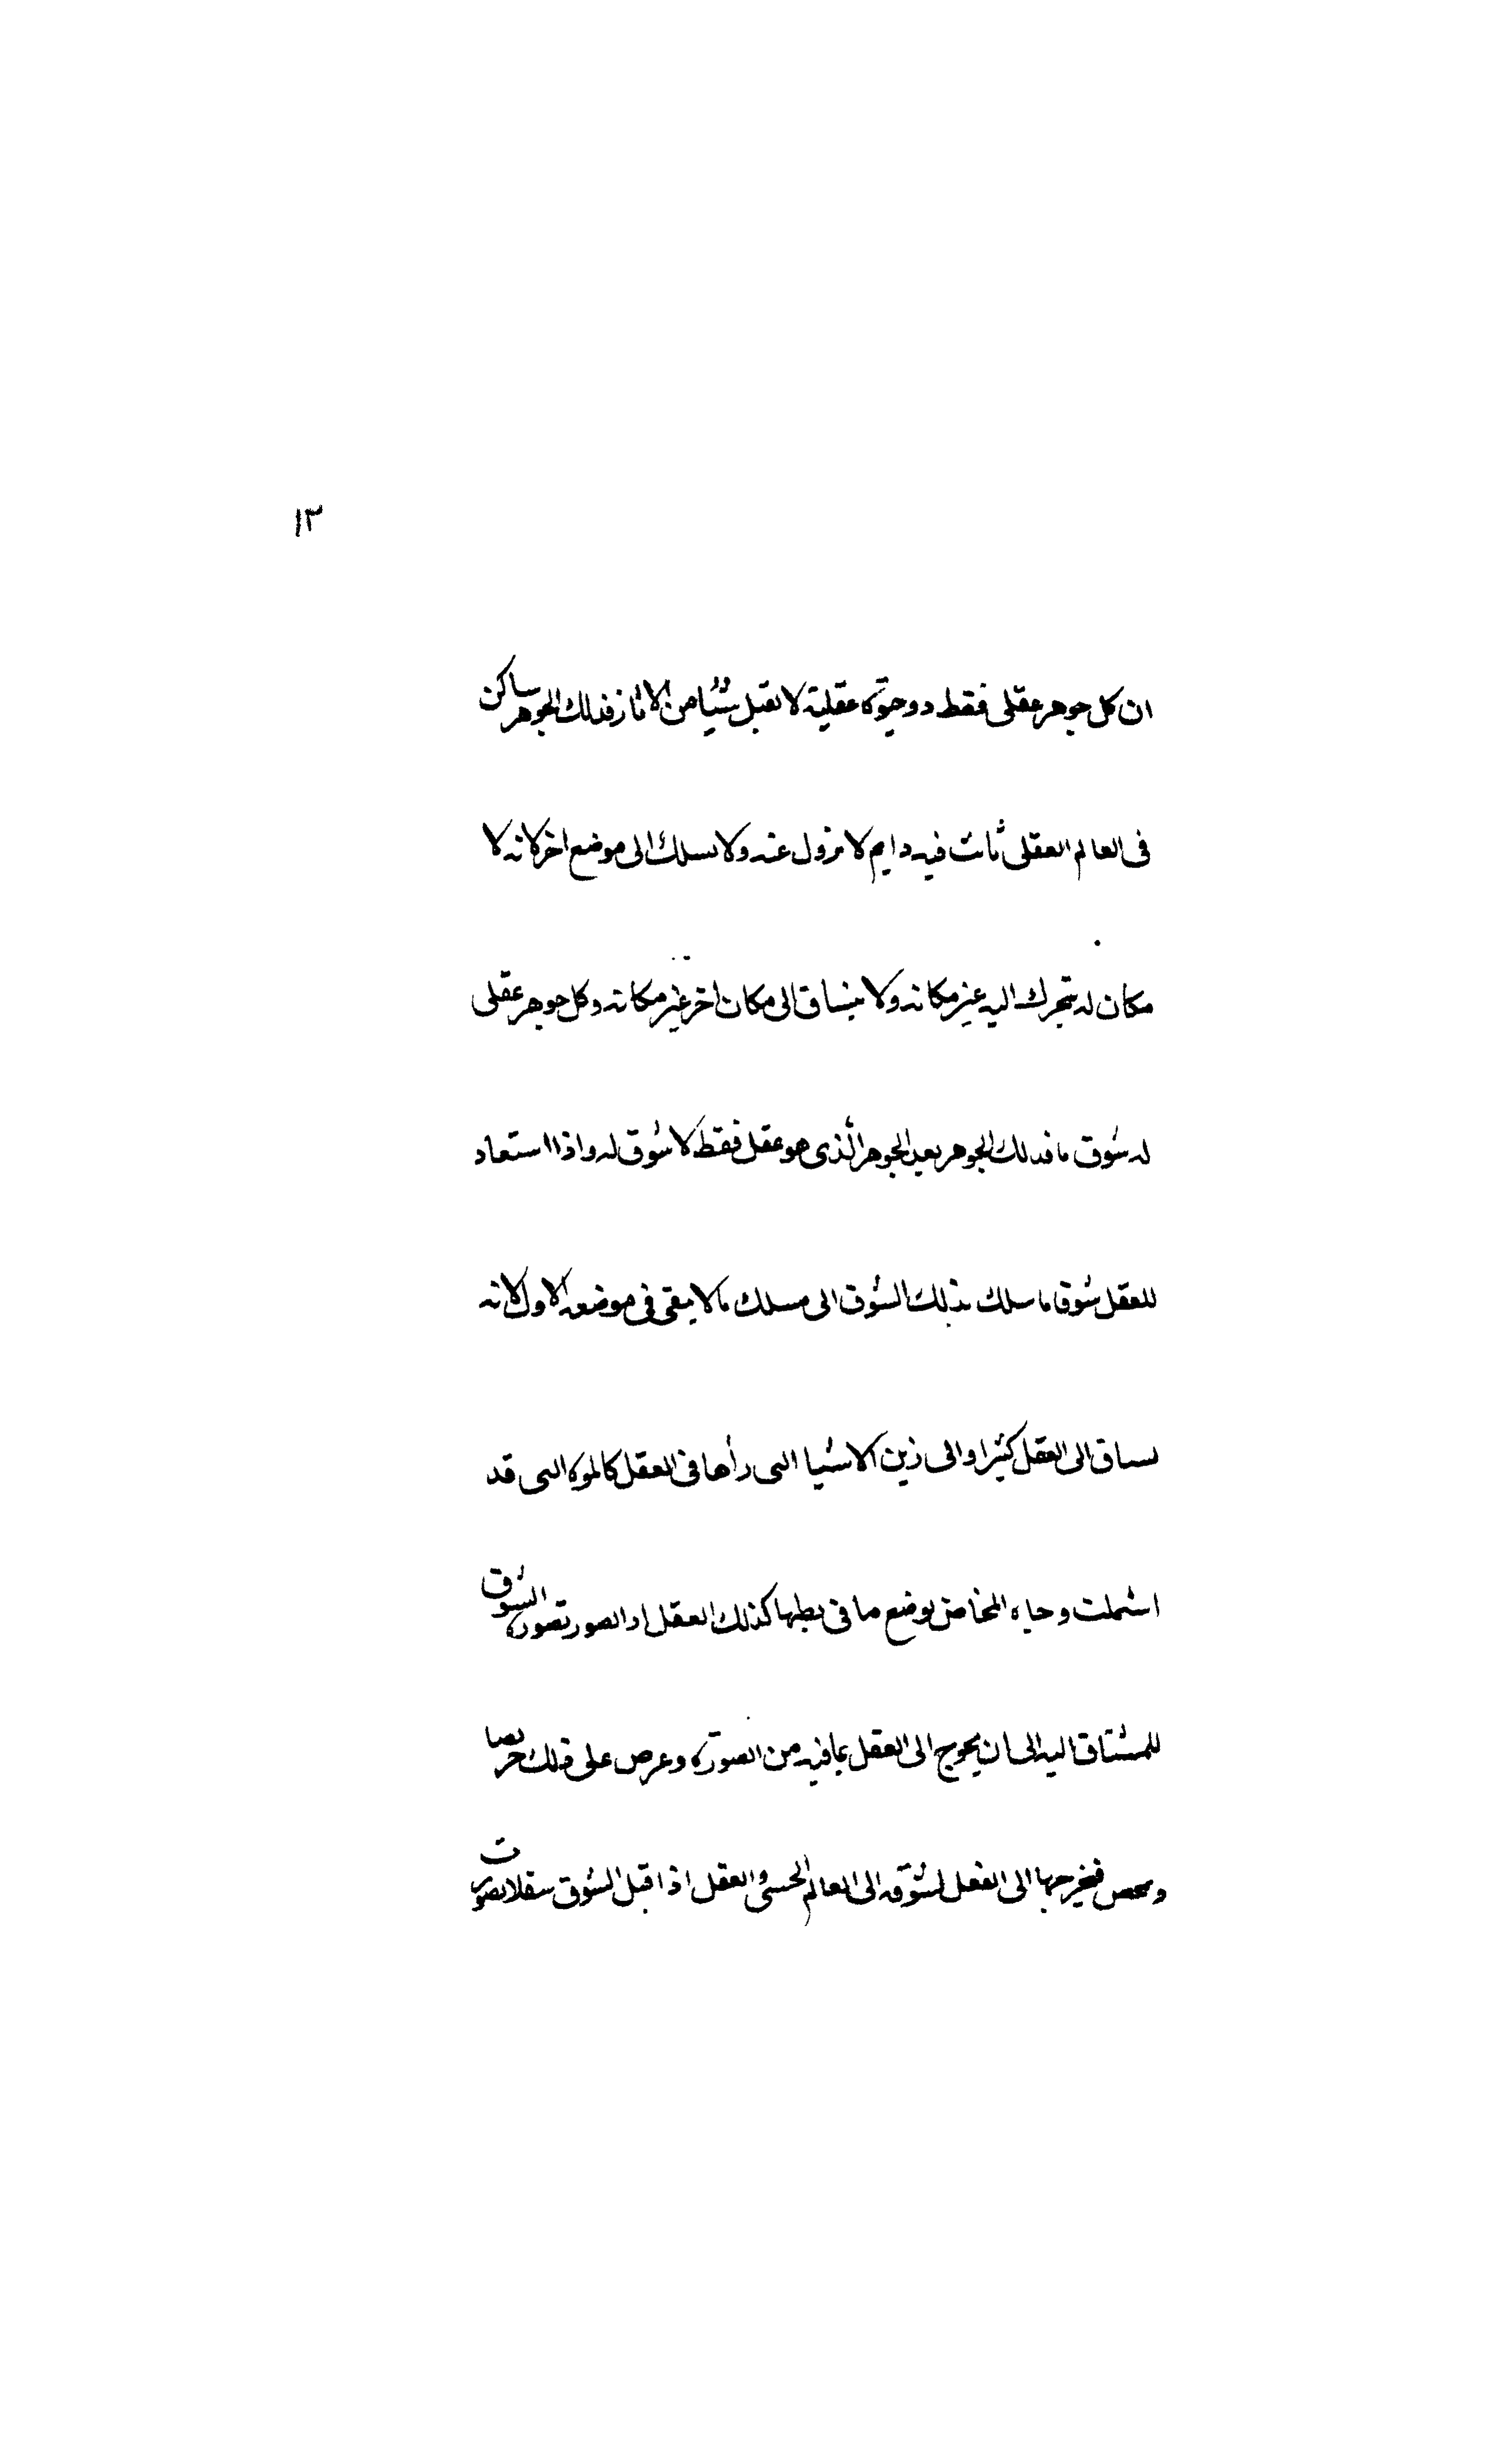 ١٣
ان كل جوهر عقلى فقط ذو حيوة عقلية لا يقبل شيئا من الاثار فذلك الجوهر ساكن
فى العالم العقلى ثابت فيه دايم لا يزول عنه ولا يسلك الى موضع اخر لانه لا
مكان له يتحرك اليه غير مكانه ولا ينساق الى مكان اخر غير مكانه وكل جوهر عقلى
له شوق ما فذلك الجوهر بعد الجوهر الذى هو عقل فقط لا شوق له واذا استعاد
للعقل شوق ما سلك بذلك الشوق الى مسلك ما لا يبقى فى موضعه الاول لانه
يساق الى العقل كثيرا والى زين الاشيا التى رأها فى العقل كالمرة التى قد
اشملت وجاه المخاض بوضع ما فى بطنها كذلك العقل اذ الصور تصورة الشوق
للمشتاق اليه الى ان يخرج الى العقل بما فيه من الصورة وعرص على ذلك حرصا
فيخرجها الى الفعل لشوقه الى العالم الحسى والعقل اذا قبل الشوق سفلا تصورت